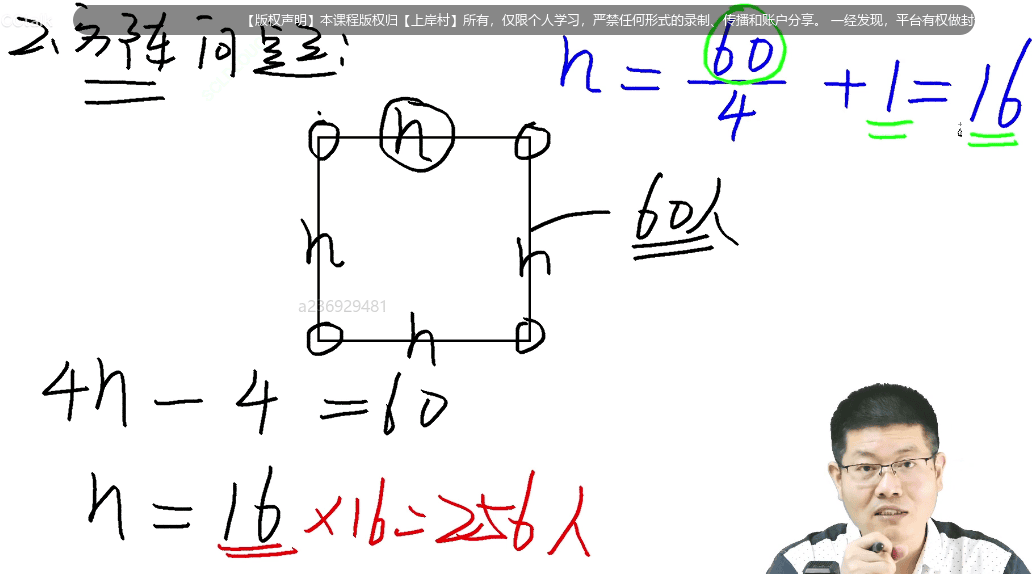 【版权声明】本课程版权归【上岸村】所有，仅限个人学习，严禁任何形式的录制、传播和账户分享。一经发现，平台有权做封
2、方阵问题：
n = 60/4 + 1 = 16
n
n n
60人
a236929481
n
4n - 4 = 60
n = 16 ×16=256人